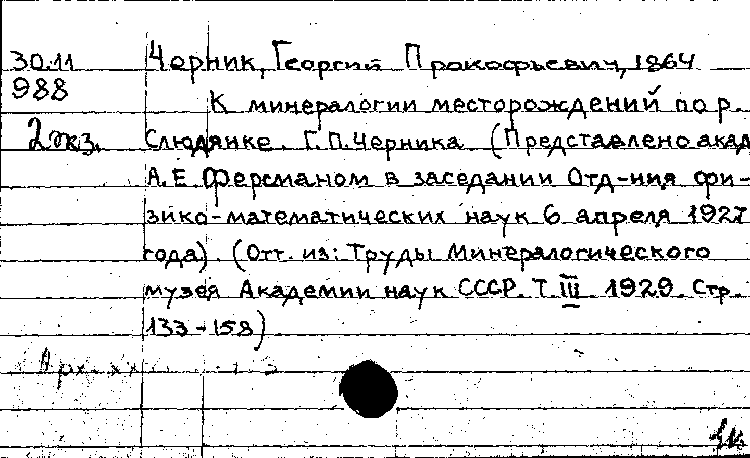 30.11 Черник, Георгий Прокофьевич, 1864
988
К минералогии месторождений по р.
2 экз. Слюдянке. Г.П. Черника. (Представлено акад.
А.Е. Ферсманом в заседании Отд-ния фи-
зико-математических наук 6 апреля 1927
года). (Отт. из: Труды Минералогического
музея Академии наук СССР. Т. III 1929. Стр.
133-158)